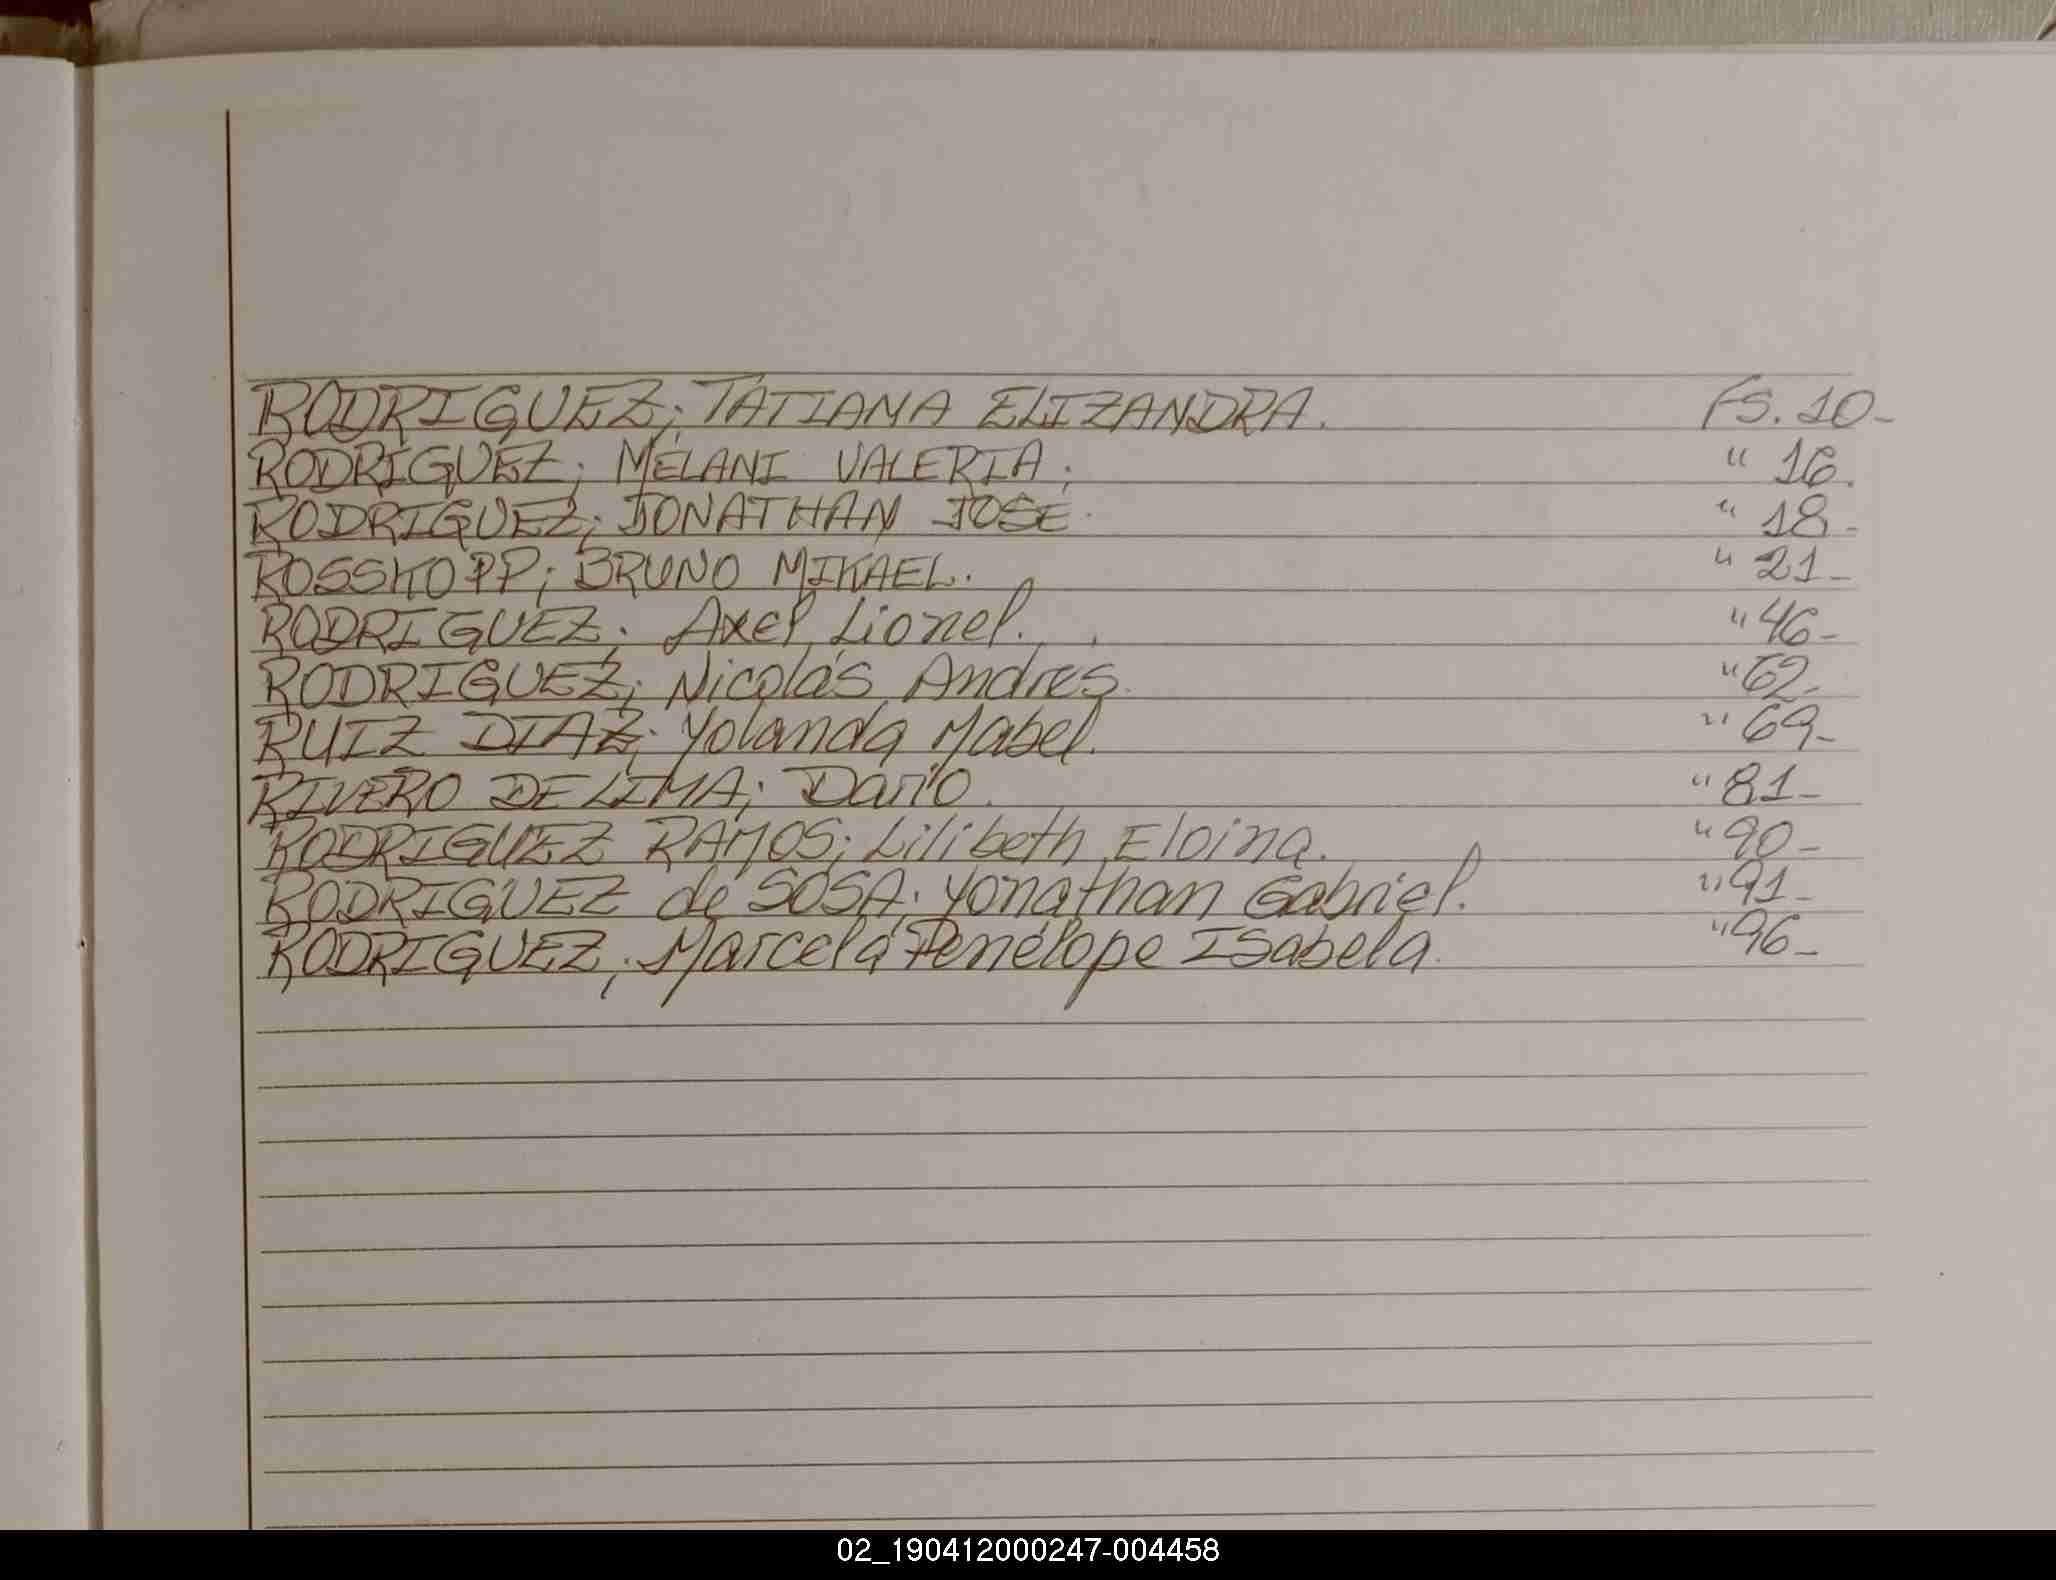 RODRIGUEZ; TATIANA ELIZANDRA. Fs. 10-
RODRIGUEZ; MELANI VALERIA; " 16.
RODRIGUEZ; JONATHAN JOSE. " 18-
ROSSKOPP; BRUNO MIKAEL. " 21-
RODRIGUEZ; Axel Lionel. " 46-
RODRIGUEZ; Nicolás Andres. " 62-
RUIZ DIAZ; Yolanda Mabel. " 69-
RIVERO DE LIMA; Darío. " 81-
RODRIGUEZ RAMOS; Lilibeth Eloina. " 90-
RODRIGUEZ de SOSA; Yonathan Gabriel. " 91-
RODRIGUEZ; Marcela Penélope Isabela. " 96-
02_190412000247-004458